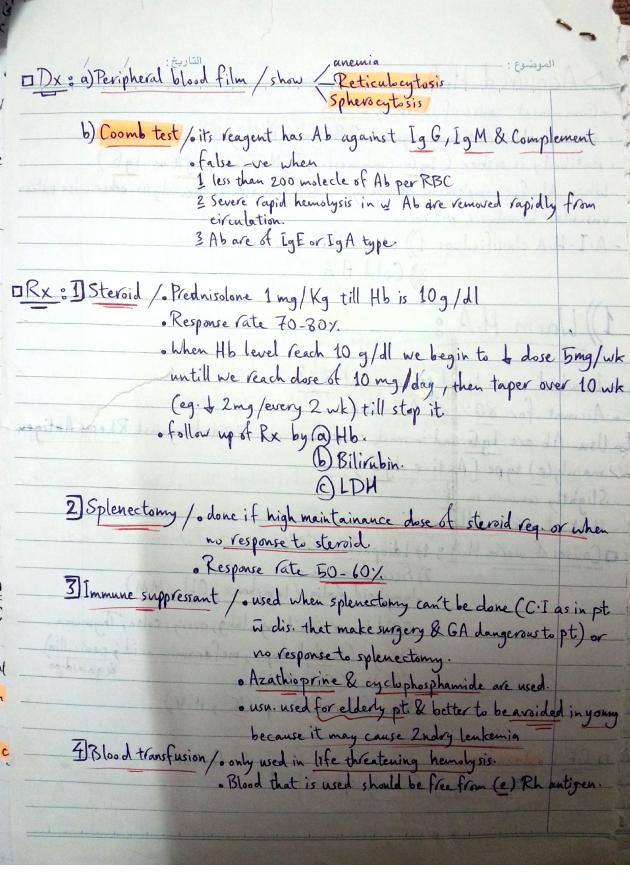 الموضوع :
التاريخ :
anemia
Dx : a) Peripheral blood film / show Reticulocytosis
Spherocytosis
b) Coomb test / . its reagent has Ab against IgG, IgM & Complement
. false -ve when
1 less than 200 molecle of Ab per RBC
2 Severe rapid hemolysis in w Ab are removed rapidly from
circulation.
3 Ab are of IgE or IgA type.
Rx : 1) Steroid / . Prednisolone 1 mg/Kg till Hb is 10 g/dl
. Response rate 70-80%.
. When Hb level reach 10 g/dl we begin to ↓ dose 5mg/wk
untill we reach dose of 10 mg/day, then taper over 10 wk
(eg. ↓ 2mg/every 2 wk) till stop it.
. follow up of Rx by (a) Hb.
(b) Bilirubin.
(c) LDH
2) Splenectomy / . done if high maintainance dose of steroid req. or when
no response to steroid.
. Response rate 50-60%.
3) Immune suppressant / . used when splenectomy can't be done (C.I as in pt
w̄ dis. that make surgery & GA dangerous to pt) or
no response to splenectomy.
. Azathioprine & cyclophosphamide are used.
. usu. used for elderly pt & better to be avoided in young
because it may cause 2ndry leukemia
4) Blood transfusion / . only used in life threatening hemolysis.
. Blood that is used should be free from (e) Rh antigen.